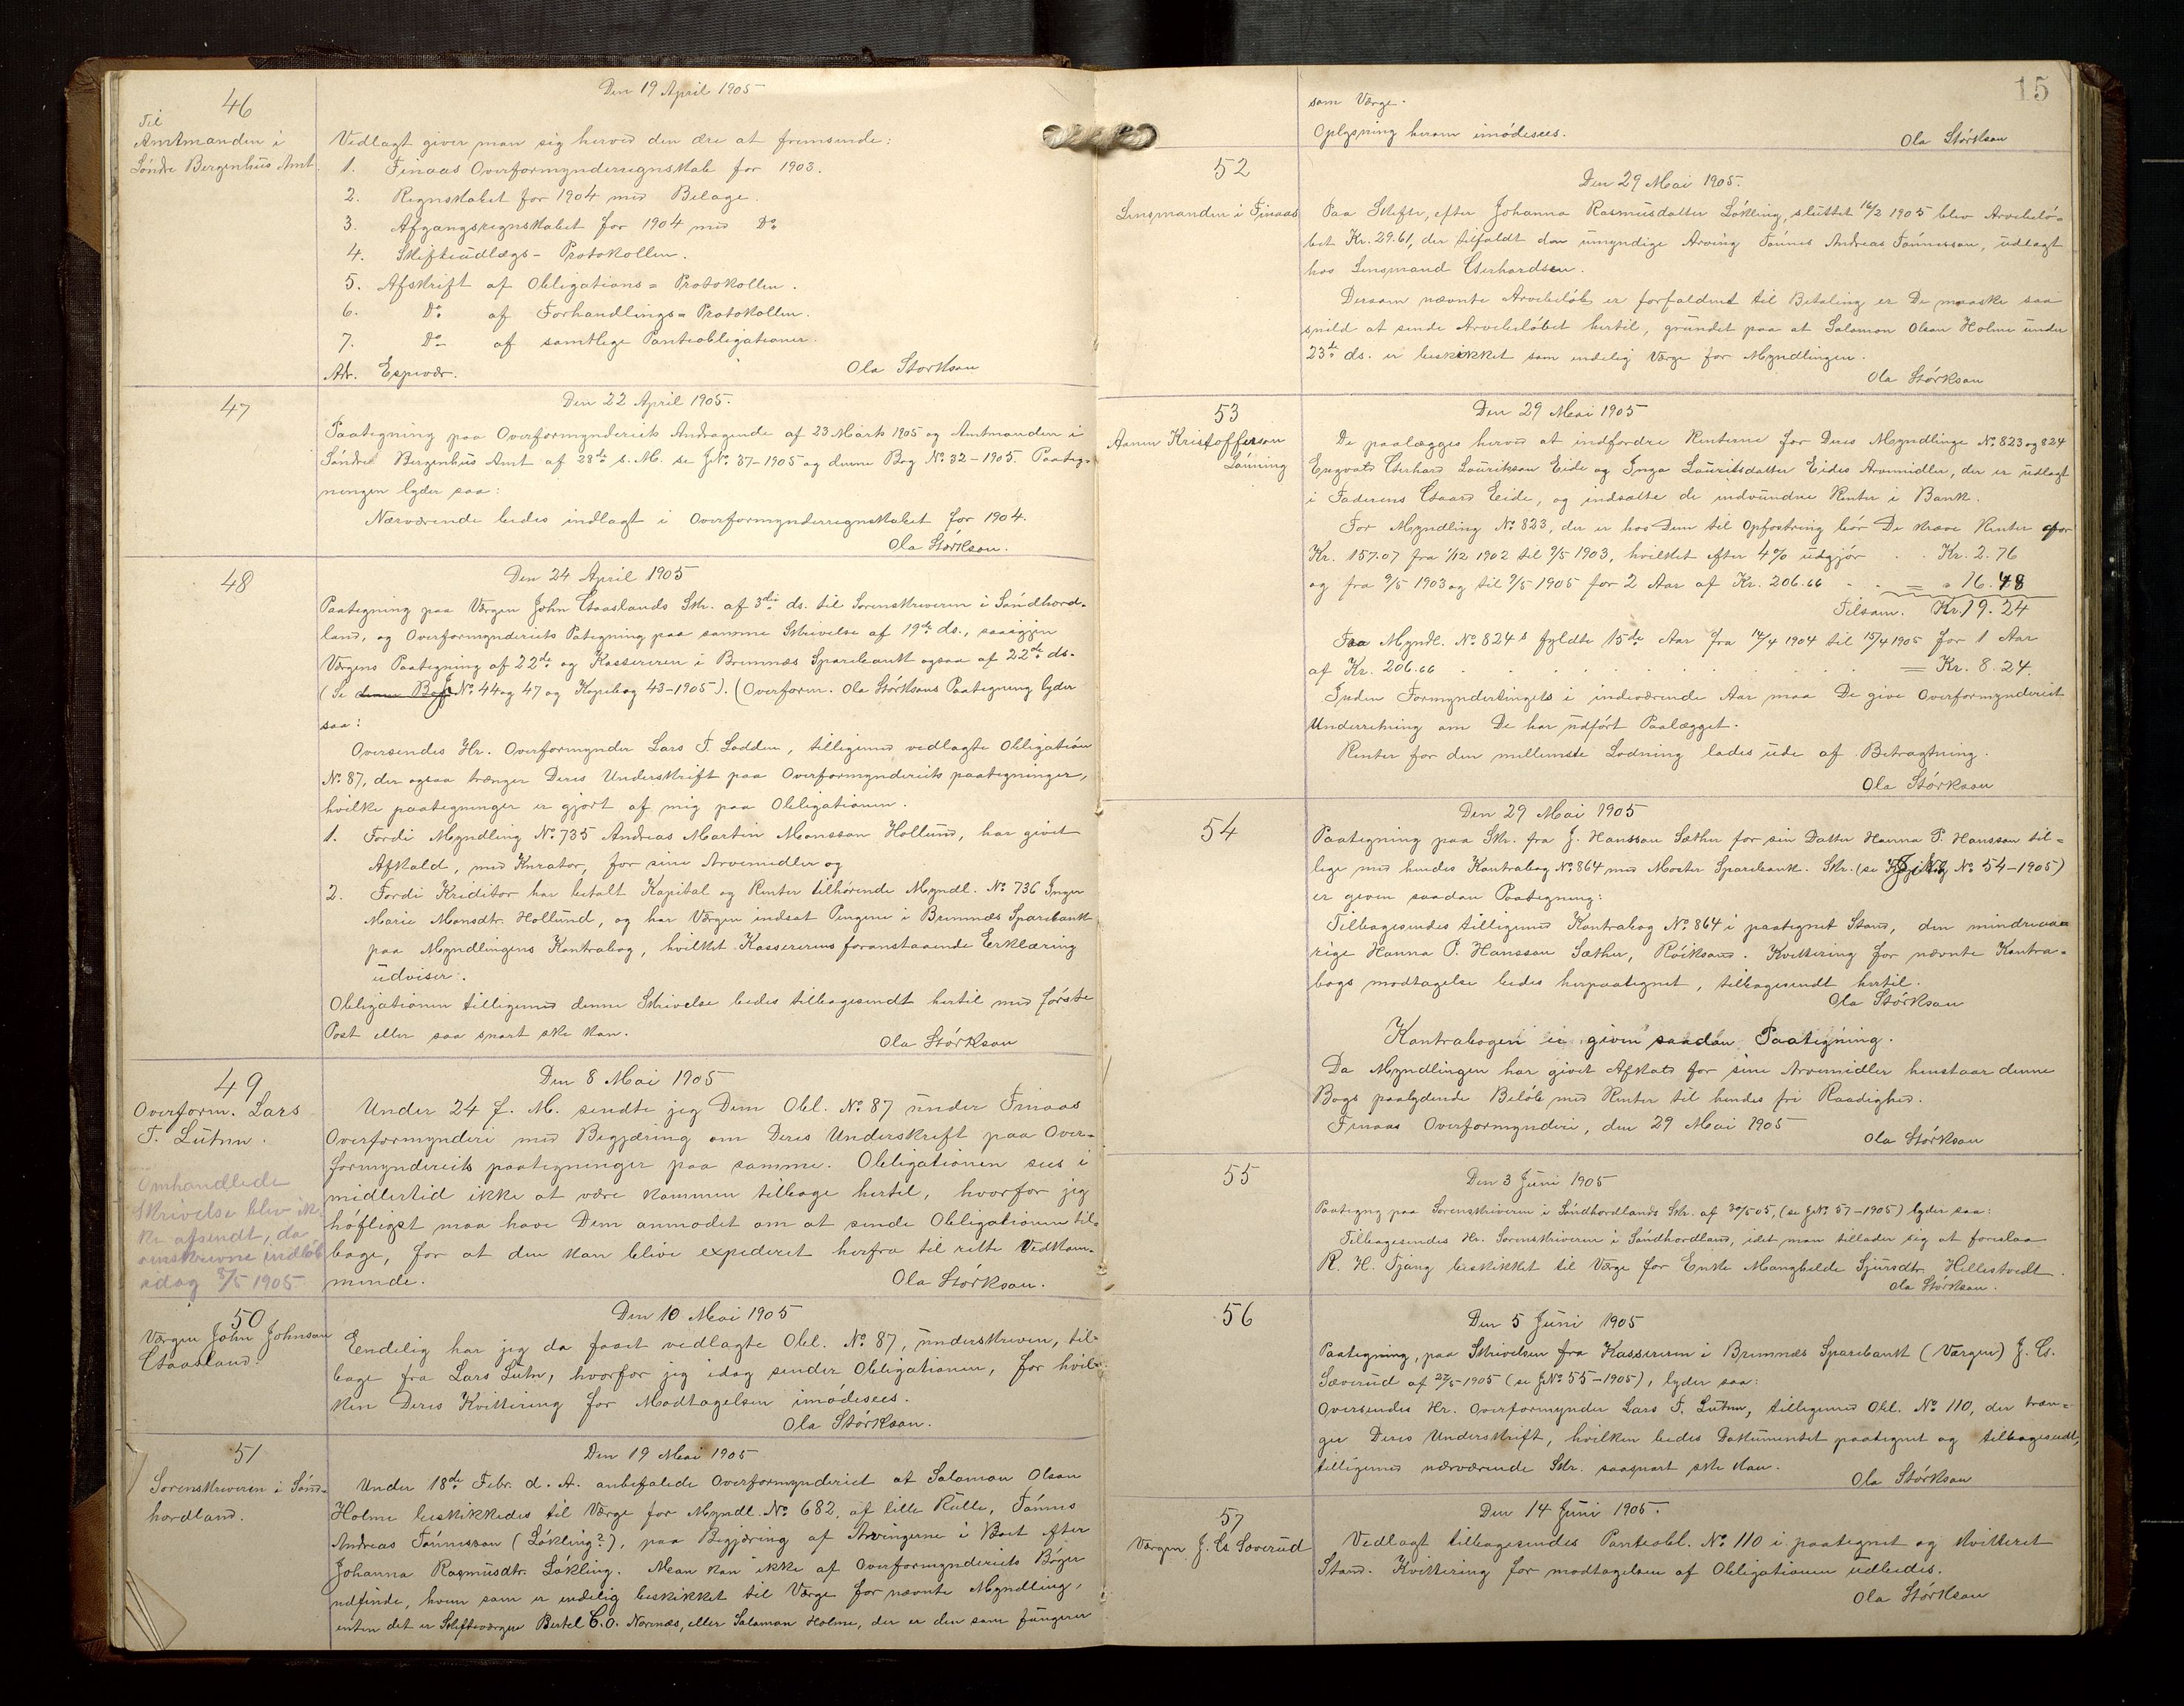 46
Til
Amtmanden i
Söndre Bergenhus Amt.
Den 19 April 1905
Vedlagt giver man sig herved den ære at fremsende:
1. Finaas Overformynderregnskab for 1903.
2. Regnskabet for 1904 med Belage.
3. Afgangsregnskabet for 1904 med Do
4. Skifteudlægs-Protokollen.
5. Afskrift af Obligations=Protokollen.
6. Do af Forhandlings=Protokollen.
7. Do af samtlege Panteobligationer.
Adr. Espevær.
Ola Störkson
47
Den 22 April 1905.
Paategning paa Overformynderiets Andragende af 23 Marts 1905 og Amtmanden i
Söndre Bergenhus Amt af 28de s. M. se J.No. 37-1905 og denne Bog No. 32-1905. Paateg-
ningen lyder saa:
Nærværende bedes indlagt i Overformynderregnskabet for 1904.
Ola Störkson.
48
Den 24 April 1905
Paategning paa Værgen John Gaaslands Skr. af 3die ds. til Sorenskriveren i Söndhord-
land, og Overformynderiets Pategning paa samme Skrivelse af 19de ds., saaigjen
Værgens Paategning af 22de og Kassereren i Bremnæs Sparebank ogsaa af 22de ds.
(Se denne Bog J No. 44 og 47 og Kopibog 43-1905). (Overform. Ola Störksons Paategning lyder
saa:
Oversendes Hr. Overformynder Lars T. Lodden, tilligemed vedlagte Obligation
No. 87, der ogsaa trænger Deres Underskrift paa Overformynderiets paategninger,
hvilke paategninger er gjort af mig paa Obligationen.
1. Fordi Myndling No. 735 Andreas Martin Monsson Hollund, har givet
Afkald, med Kurator, for sine Arvemidler og
2. Fordi Kreditor har betalt Kapital og Renter tilhörende Myndl. No. 736 Inger
Marie Monsdtr. Hollund, og har Værgen indsat Pengene i Bremnæs Sparebank
paa Myndlingens Kontrabog, hvilket Kassererens foranstaaende Erklæring
udviser.
Obligationen tilligemed denne Skrivelse bedes tilbagesendt hertil med förste
Post eller saa snart ske kan.
Ola Störkson
49
Overform. Lars
T. Lutnn.
Omhandlede
Skrivelse blev ik-
ke afsendt, da
omskrevne indlöb
idag 8/5 1905.
Den 8 Mai 1905
Under 24 f. M. sendte jeg Dem Obl. No. 87 under Finaas
Overformynderi med Begjæring om Deres Underskrift paa Over-
formynderiets paategninger paa samme. Obligationen sees i
midlertid ikke at være kommen tilbage hertil, hvorfor jeg
höfligst maa have Dem anmodet om at sende Obligationen til-
bage, for at den kan blive expederet herfra til rette Vedkom-
mende.
Ola Störkson.
50
Værgen John Johnson
Gaasland.
Den 10 Mai 1905
Eendelig har jeg da faaet vedlagte Obl. No. 87, underskreven, til-
bage fra Lars Lutn, hvorfor jeg idag sender Obligationen, for hvil-
ken Deres Kvittering for Modtagelsen imödesees.
Ola Störkson.
51
Sorenskriveren i Sönd-
hordland.
Den 19 Mai 1905
Under 18de Febr. d. A. anbefalede Overformynderiet at Salamon Olson
Holme beskikkedes til Værge for Myndl. No. 682, af lille Rulle, Tönnes
Andreas Tönnesson (Lökling?), paa Begjæring af Arvingerne i Boet efter
Johanna Rasmusdtr. Lökling. Mean kan ikke af Overformynderiets Böger
udfinde, hvem som er endelig beskikket til Værge for nævnte Myndling,
enten det er Skifteværgen Bertel C. O. Nornæs, eller Salamon Holme, der er den som fungerer
15
som Værge.
Oplysning herom imödesees.
Ola Störkson
52
Lensmanden i Finaas
Den 29 Mai 1905.
Paa Skifte, efter Johanna Rasmusdatter Lökling, sluttet 16/2 1905 blev Arvebelö-
bet Kr. 29.61, der tilfaldt den umyndige Arving Tönnes Andreas Tönnesson, udlagt
hos Lensmand Gerhardsen.
Dersom nævnte Arvebeløb er forfaldent til Betaling er De maaske saa
snild at sende Arvebelöbet hertil, grundet paa at Salomon Olson Holme under
23de ds. er beskikket som endelig Værge for Myndlingen.
Ola Störkson
53
Aamen Kristofferson
Lönning
Den 29 Mai 1905
De paalægges herved at indfordre Renterne for Deres Myndlinge No. 823 og 824
Engvald Gerhard Lauritson Eide og Inga Lauritsdatter Eides Arvemidler, der er udlagt
i Faderens Gaard Eide, og indsætte de indvundne Renter i Bank.
For Myndling No. 823, der er hos Dem til Opfostring bör De kræve Renter for
Kr. 157.07 fra 1/12 1902 til 9/5 1903, hvilket efter 4% udgjör . . Kr. 2.76
og fra 9/5 1903 og til 9/5 1905 for 2 Aar af Kr. 206.66 - - = " 16.48
Tilsam. Kr. 19.24
Fra Myndl. No. 824s fyldte 15de Aar fra 14/4 1904 til 15/4 1905 for 1 Aar
af Kr. 206.66 = Kr. 8.24.
Inden Formyndertingets i indeværende Aar maa De give Overformynderiet
Underretning om De har udfört Paalægget.
Renter for den mellemste Lodning lades ude af Betragtning.
Ola Störkson
54
Den 29 Mai 1905
Paategning paa Skr. fra J. Hansson Sæther for sin Datter Hanna P. Hansson til-
lige med hendes Kontrabog No. 864 med Moster Sparebank. Skr. (se J. No. 54-1905)
er given saadan Paategning:
Tilbagesendes tilligemed Kontrabog No. 864 i paategnet Stand, den mindreaa
rige Hanna P. Hansson Sæther, Röiksund. Kvittering for nævnte Kontra-
bogs modtagelse bedes herpaategnet, tilbagesendt hertil.
Ola Störkson
Kontrabogen er given saadan Paategning.
Da Myndlingen har givet Afkald for sine Arvemidler henstaar denne
Bogs paalydende Belöb med Renter til hendes fri Raadighed.
Finaas Overformynderi, den 29 Mai 1905
Ola Störkson
55
Den 3 Juni 1905
Paategng paa Sorenskriveren i Söndhordlands Skr. af 30/5 05, (se J.No. 57-1905) lyder saa:
Tilbagesendes Hr. Sorenskriveren i Söndhordland, idet man tillader sig at foreslaa
R. H. Tjong beskikket til Værge for Enke Manghelde Sjursdtr. Hellestvedt.
Ola Störkson.
56
Den 5 Juni 1905
Paategning, paa Skrivelsen fra Kassereren i Bremnæs Sparebank (Værgen) J. G.
Sæverud af 27/5-1905 (se J.No. 55-1905), lyder saa:
Oversendes Hr. Overformynder Lars T. Lutnn, tilligemed Obl. No. 110, der træn-
ger Deres Underskrift, hvilken bedes Dokumentet paategnet og tilbagesendt,
tilligemed nærværende Skr. saasnart ske kan.
Ola Störkson
57
Værgen J. G. Soverud
Den 14 Juni 1905.
Vedlagt tilbagesendes Panteobl. No. 110 i paategnet og kvitteret
Stand. Kvittering for modtagelsen af Obligationen udbedes.
Ola Störkson